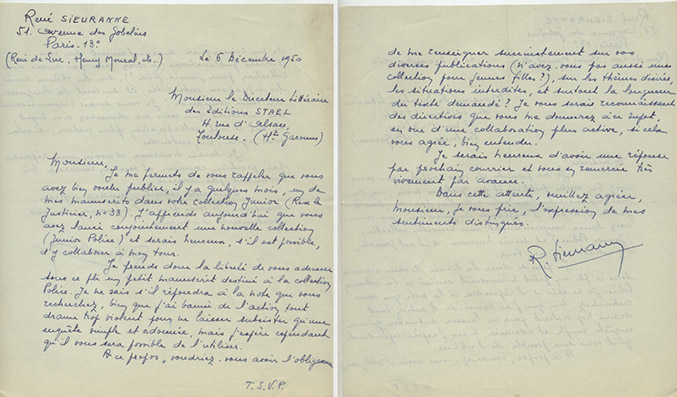 René SIEURANNE
51. avenue des Gobelins
Paris. 13e
(René de Luc. Henry Monval. etc.)
Le 6 Décembre 1950
Monsieur le Directeur Littéraire
des Editions STAEL
4. rue d'Alsace.
Toulouse. (Hte Garonne)
Monsieur,
Je me permets de vous rappeler que vous
avez bien voulu publier, il y a quelques mois, un de
mes manuscrits dans votre collection Junior (Rex le
Justicier, No 38). J'apprends aujourd'hui que vous
avez lancé conjointement une nouvelle collection
(Junior Police) et serais heureux, s'il est possible,
d'y collaborer à mon tour.
Je prends donc la liberté de vous adresser
sous ce pli un petit manuscrit destiné à la collection
Police. Je ne sais s'il répondra à la note que vous
recherchez, bien que j'ai banni de l'action tout
drame trop violent pour ne laisser subsister qu'une
enquête simple et adoucie, mais j'espère cependant
qu'il vous sera possible de l'utiliser.
A ce propos, voudriez-vous avoir l'obligeance
T.S.V.P.
de me renseigner succinctement sur vos
diverses publications (n'avez-vous pas aussi une
collection pour jeunes filles?), sur les thèmes désirés,
les situations interdites, et surtout la longueur
du texte demandé? Je vous serais reconnaissant
des directives que vous me donnerez à ce sujet,
en vue d'une collaboration plus active, si cela
vous agrée, bien entendu.
Je serais heureux d'avoir une réponse
par prochain courrier et vous en remercie très
vivement par avance.
Dans cette attente, veuillez agréer,
Monsieur, je vous prie, l'expression de mes
sentiments distingués.
R. Sieuranne